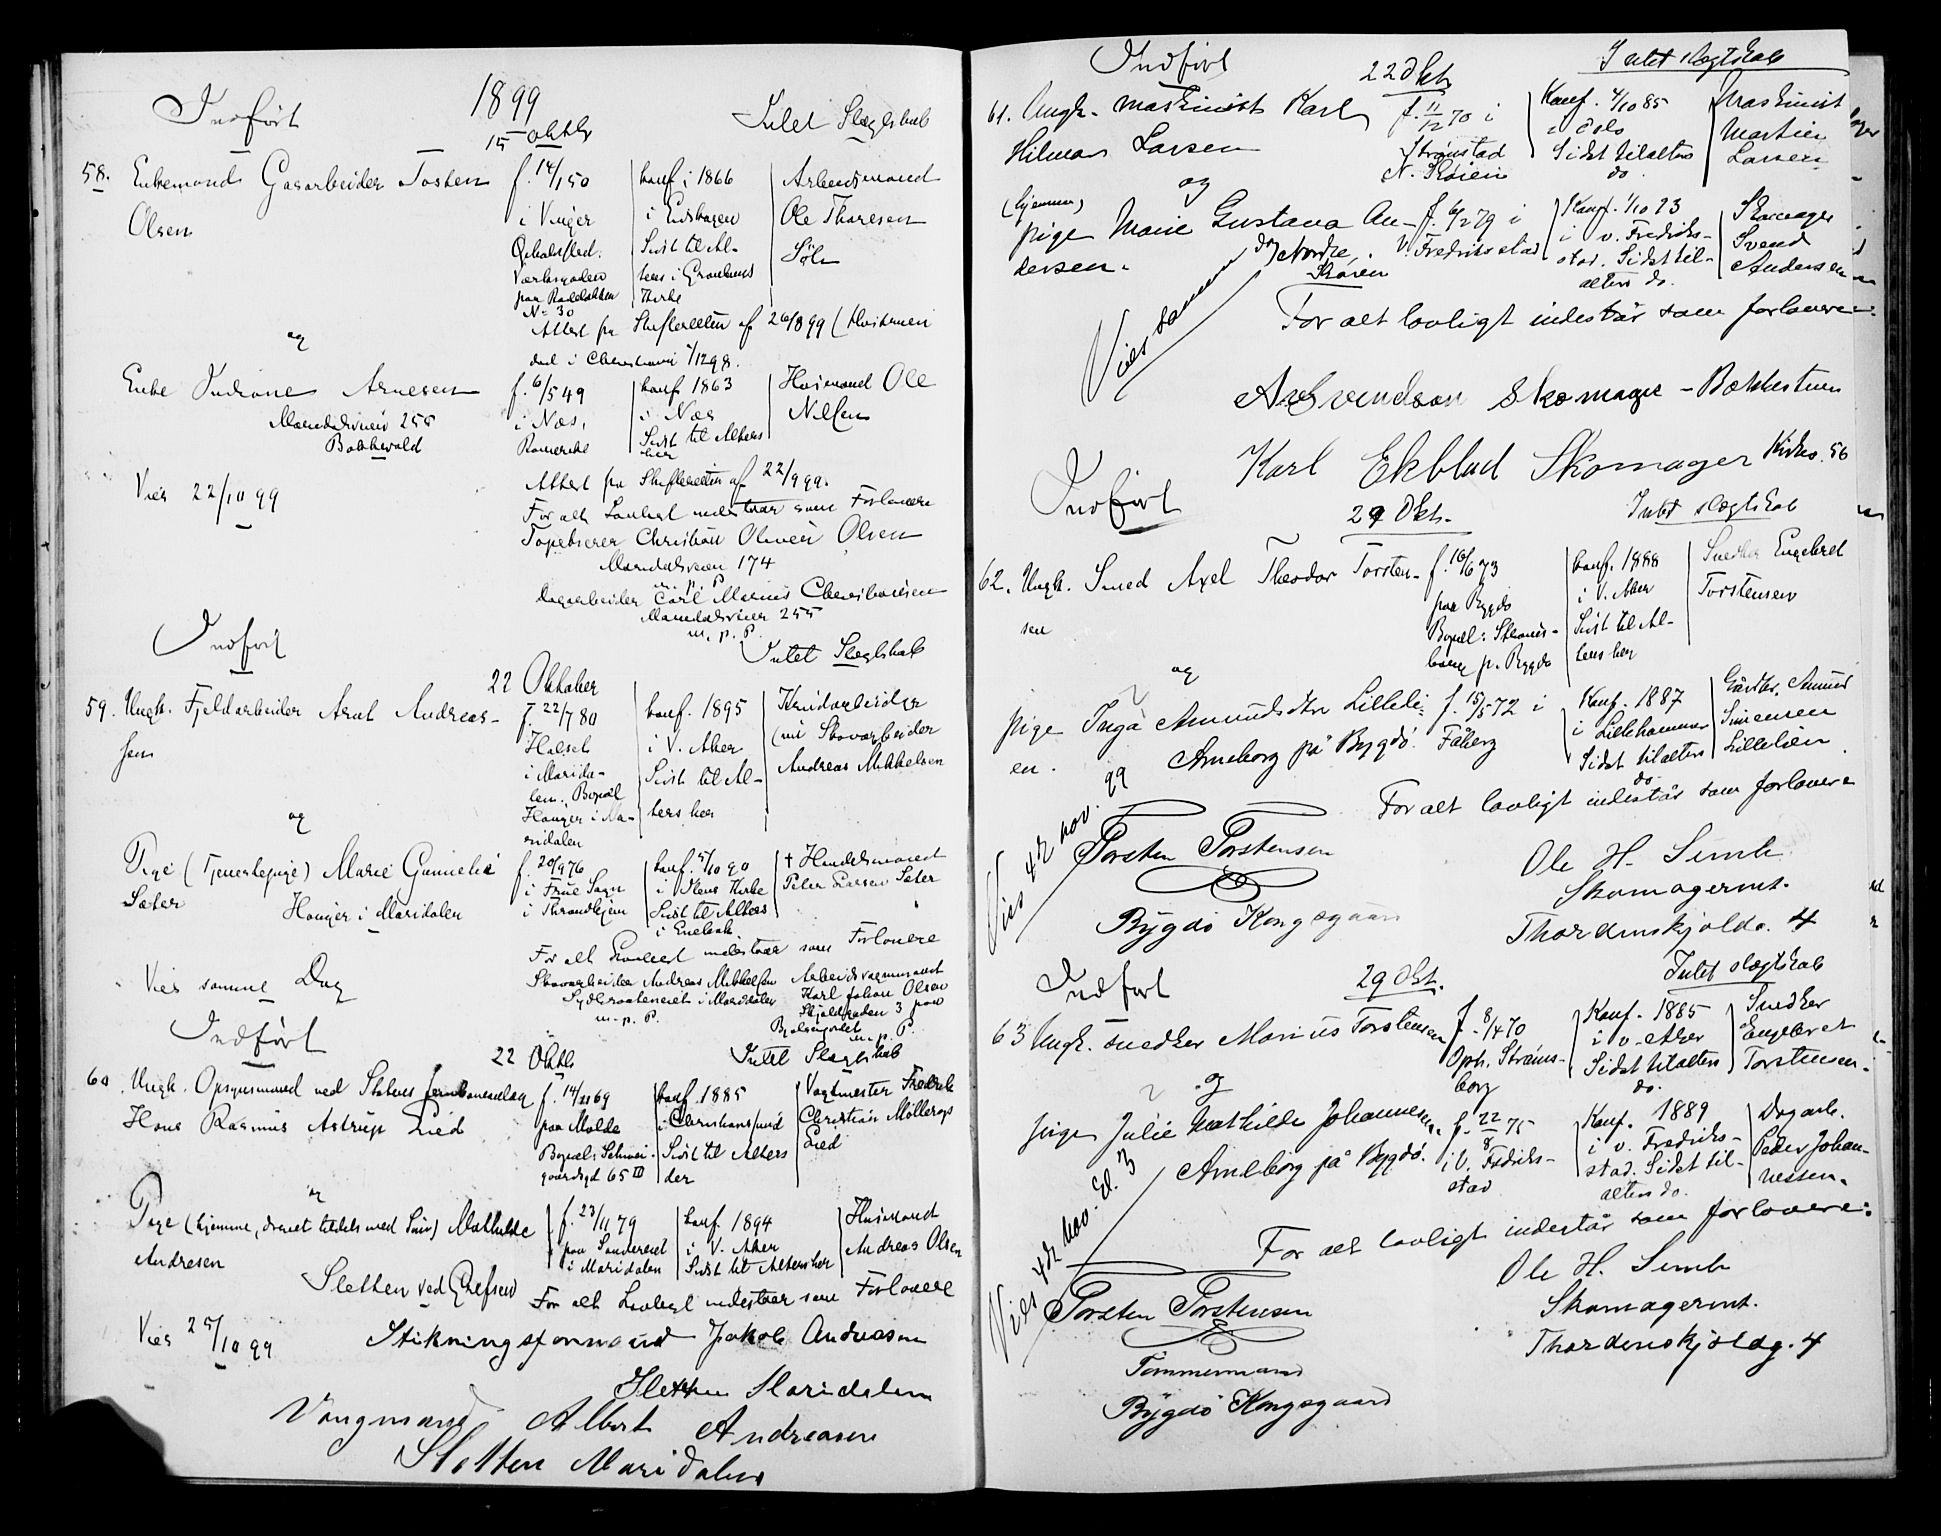 1899
Indført
15 Oktbr
Intet Slægtskab
58. Enkemand Gasarbeider Torsten
Olsen
f. 14/1 50
i Vinger
paa Rodeløkken
No 30
konf. i 1866
i Eidskogen
Sidst til Al-
ters i Grønlands
Kirke
Arbeidsmand
Ole Thoresen
Attest fra Skifteretten af 26/8 99 (Hustruen
død i Christiania 1/12 98.
og
Enke Andrine Arnesen
Maridalsveien 255
f. 6/5 49
i Næs,
Romerike
konf. 1863
i Næs
Sidst til Alters
her
Husmand Ole
Nilsen
Attest fra Skifteretten af 22/9 99.
Viet 22/10 99
For alt Lovligt indestaar som Forlovere
Tapetserer Christian Oliver Olsen
Maridalsveien 174
m. p. P.
Dagarbeider Carl Marius Christiansen
Maridalsveien 255
m. p. P.
Indført
22 Oktober
Intet Slægtskab
59. Ungk. Fjeldarbeider Arnt Andreas-
sen
f. 22/7 80
i Marida-
len. Bopæl
Hauger i Ma-
ridalen
konf. 1895
i V. Aker
Sidst til Al-
ters her
Skovarbeider
Andreas Mikkelsen
og
Pige (Tjenestepige) Marie Gunnelie
Sæter
Hauger i Maridalen
f. 20/9 76
i Frue Sogn
i Throndhjem
konf. 5/10 90
i Kirke
Sidst til Alters
i Enebak
† Handelsmand
Peter Larsen Sæter
For alt Lovligt indestaar som Forlovere
Viet samme Dag
Skovarbeider Andreas Mikkelsen
i Maridalen
m. p. P.
Arbeidsformand
Karl Johan Olsen
3
m. p. P.
Indført
22 Oktb
Intet Slægtskab
60. Ungk. Opsynsmand ved Statens Jernbaneanlæg
Hans Rasmus Astrup Lied
f. 14/11 69
paa Molde
Bopæl: Schwei-
gaardsgd 65 III
konf. 1885
i Christianssund
Sidst til Alters
der
Vagtmester Fredrik
Christian Møllerop
Lied
og
Pige (hjemme, ernæret tildels med Søm) Mathilde
Andresen
Sletten ved Grefsen
f. 23/11 79
paa Sandermoset
i Maridalen
konf. 1894
i V. Aker
Sidst til Alters her
Husmand
Andreas Olsen
For alt Lovligt indestaar som Forlovere
Viet 25/10 99
Stikningsformand Jakob Andreasen
Sletten Maridalen
Vongmand Albert Andreasen
Sletten Maridalen
Indført
22 Okt
Intet slægtskab
61. Ungk. maskinist Karl
Hilmar Larsen
f. 11/12 70 i
Strømstad
N. Skøien
Konf. 4/10 85
i Oslo
Sidst tilalters
do.
Maskinist
Martin
Larsen
og
(hjemme)
pige Marie Gustava An-
dersen.
Nordre
Skøien
f. 6/2 79 i
V. Fredriksstad
Konf. 1/10 93
i V. Fredriks-
stad. Sidst til-
alters do.
Skomager
Svend
Andersen
Viet samme dag
For alt lovligt indestår som forlovere:
A Svendsen Skomager - Bækkestuen
Karl Ekblad Skomager Kirkv. 56
Indført
29 Okt.
Intet slægtskab
62. Ungk. Smed Axel Theodor Torsten-
sen
f. 16/6 73
paa Bygdø
Bopæl: Strøms-
borg p. Bygdø
konf. 1888
i V. Aker
Sidst til Al-
ters her
Snedker Engebret
Torstensen
og
pige Inga Amundsdtr Lilleli-
en.
Arneborg på Bygdø.
f. 15/5 72 i
Fåberg
Konf. 1887
i Lillehammer
Sidst tilalters
do.
Gårdbr. Amund
Simensen
Lillelien
Viet 4de nov. 99
For alt lovligt indestår som forlovere
Torsten Torstensen
Bygdø Kongsgaard
Ole H. Semb
Skomagermt.
Thordenskjoldg. 4
Indført
29 Okt.
Intet slægtskab
63 Ungk. snedker Marius Torstensen
f. 8/4 70
Oph. Strøms-
borg
Konf. 1885
i V. Aker
Sidst tilalters
do.
Snedker
Engebret
Torstensen.
og
pige Julie Mathilde Johannesen.
Arneborg på Bygdø.
f. 22/8 75
i V. Fredriks-
stad
Konf. 1889
i V. Fredriks-
stad. Sidst til-
alters do.
Dagarb.
Peder Johan-
nessen.
Viet 4de nov. kl. 3
For alt lovligt indestår som forlovere:
Torsten Torstensen
Tømmermand
Bygdø Kongsgaard
Ole H. Semb
Skomagermt.
Thordenskjoldg. 4